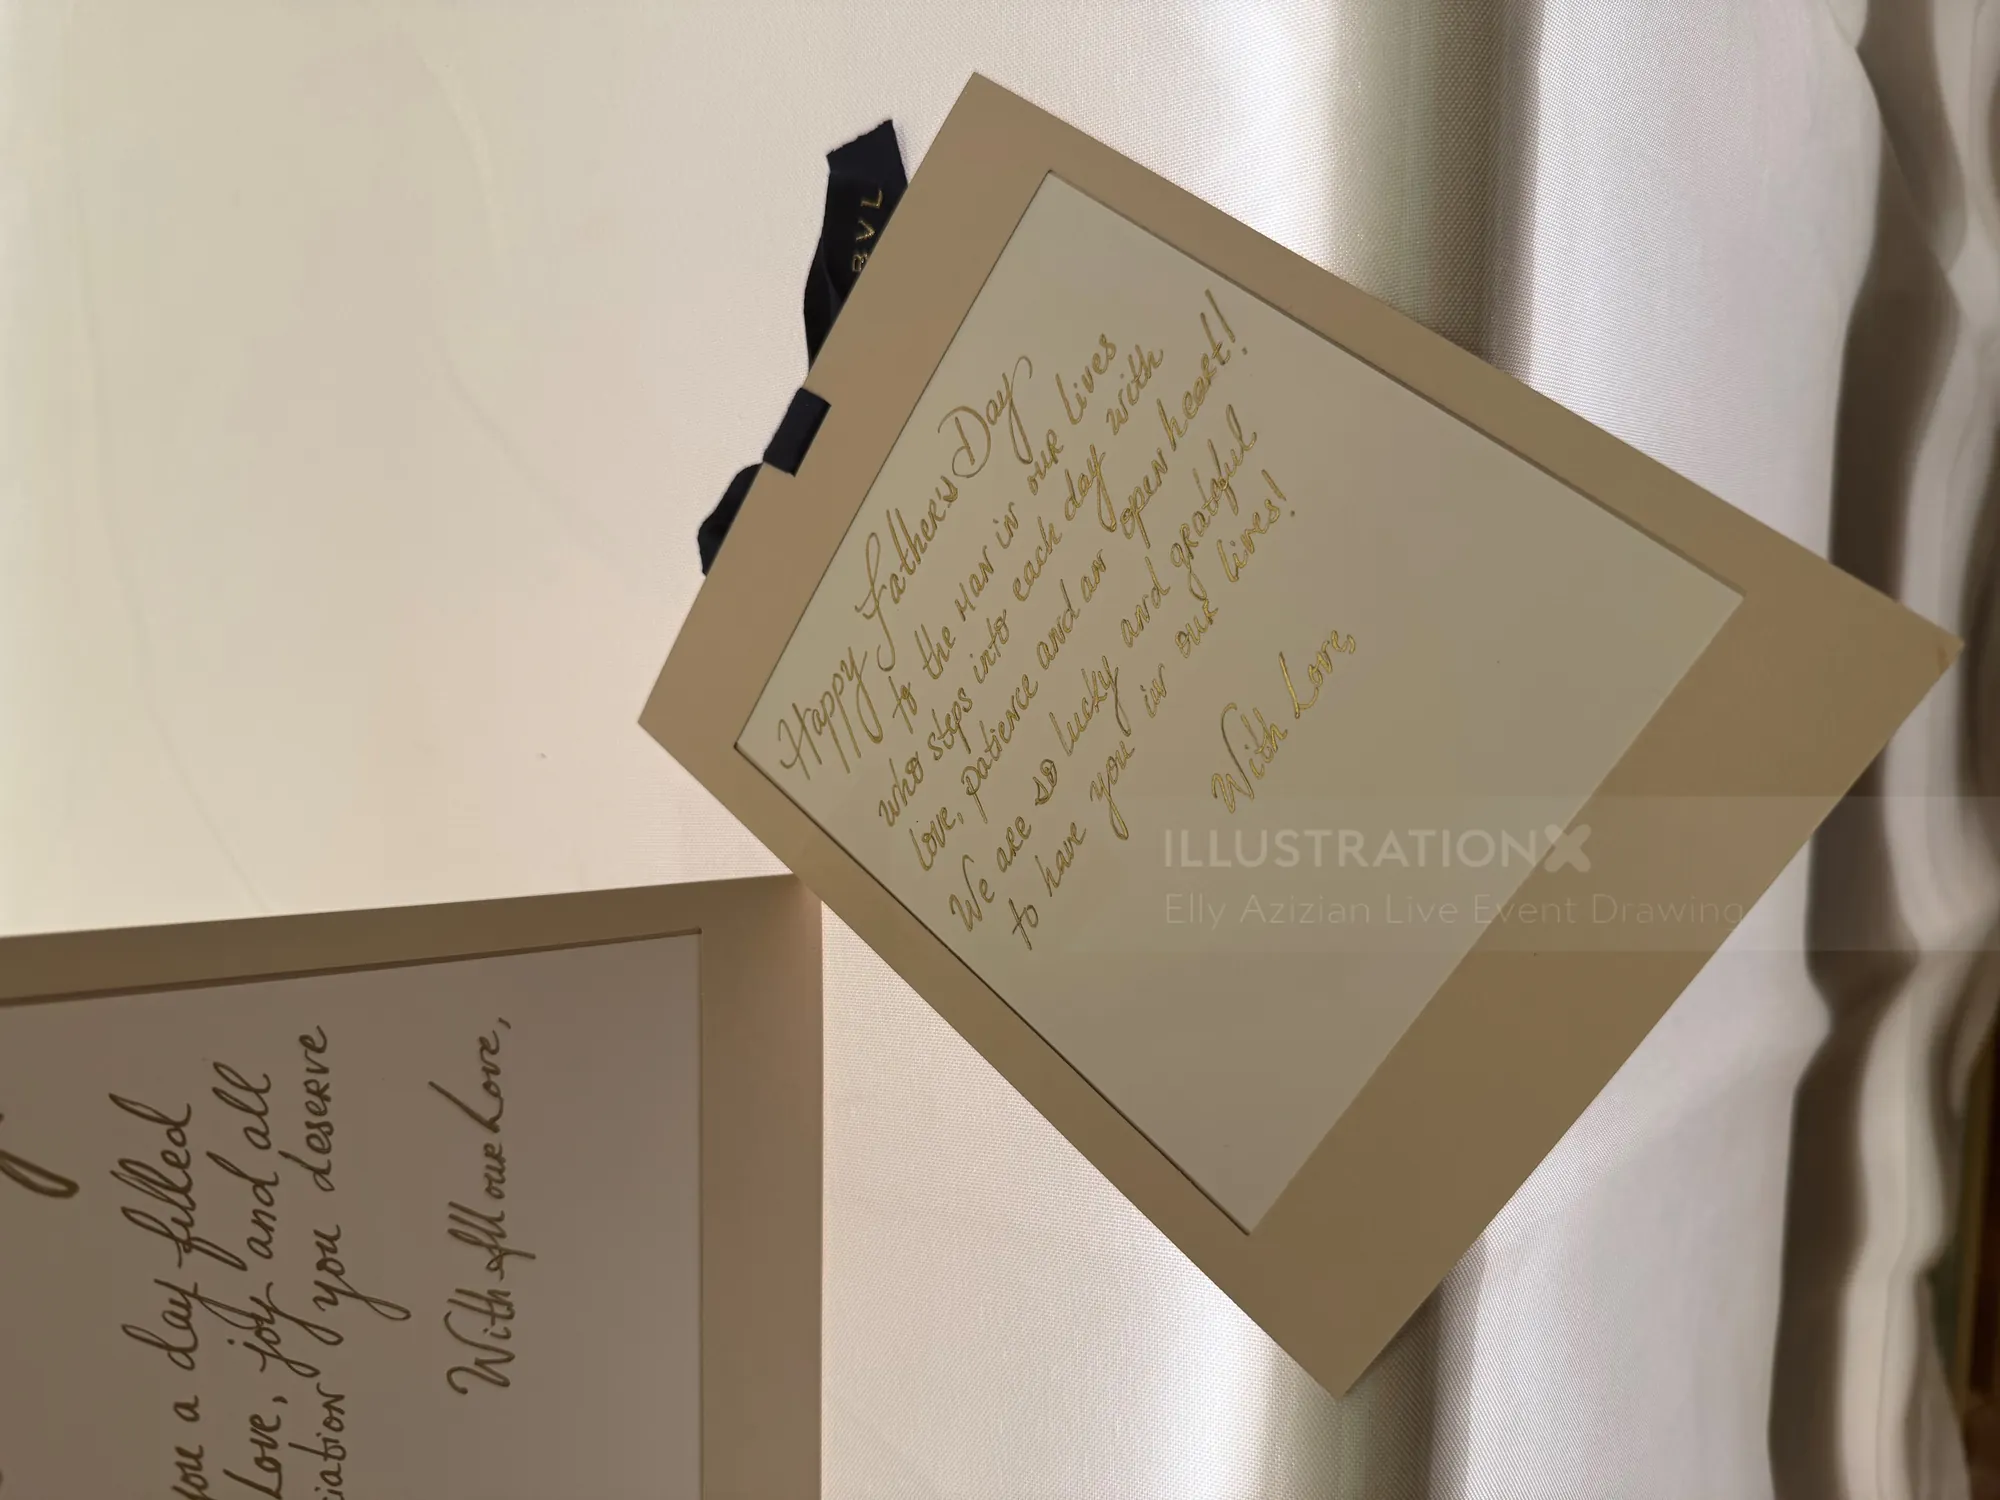 Happy Father's Day
to the man in our lives
who steps into each day with
love, patience and an open heart!
We are so lucky and grateful
to have you in our lives!
With Love,
you a day filled
Love, joy and all
you deserve
With All our Love,
BVL
ILLUSTRATIONX
Elly Azizian Live Event Drawing